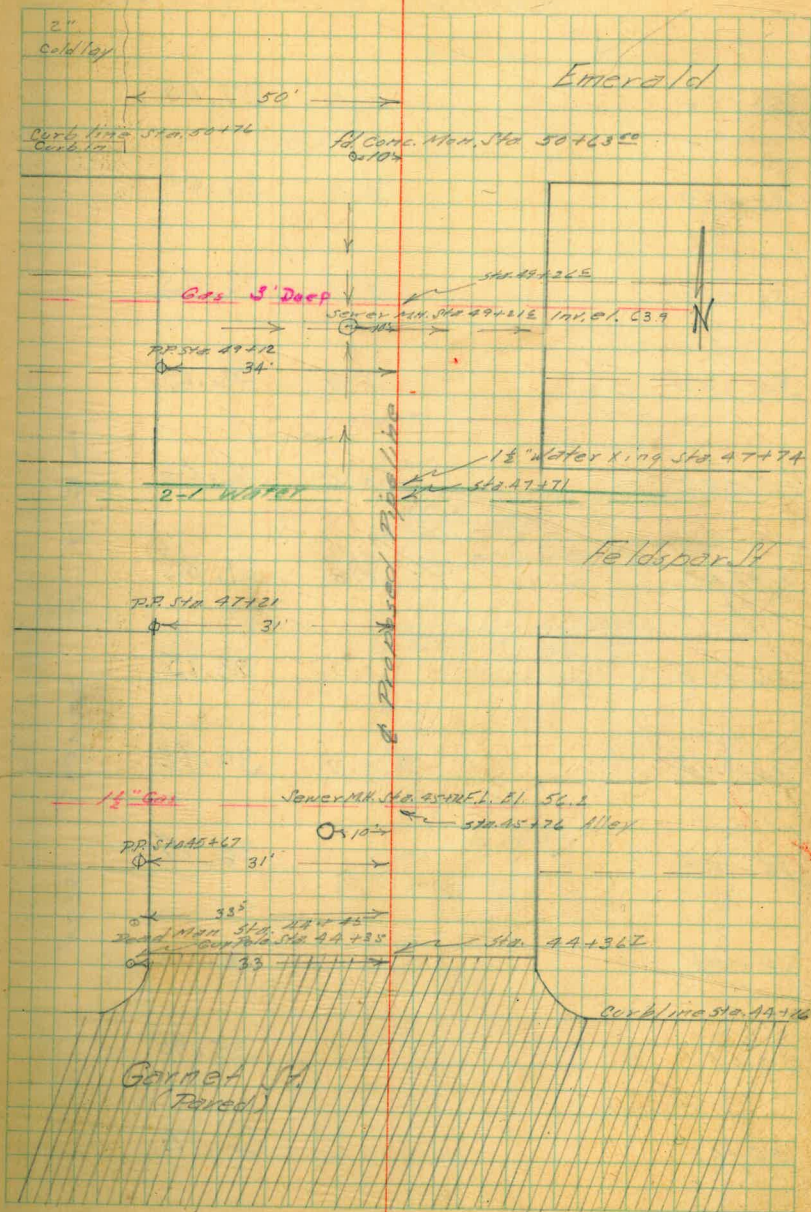 2"
Coldlay
Emerald
50'
Curb line Sta. 50+76
Curb in
fd. Conc. Mon. Sta 50+63.50
10'
Sta. 49+26
Gas 3' Deep
Sewer M.H. Sta 49+21 Inv. el. 63.9
10'
P.P. Sta. 49+12
34'
1½" Water Xing Sta. 47+74
2-1" Water
Sta. 47+71
Feldspar St
P.P. Sta 47+21
31'
₵ Proposed Pipeline
1½" Gas
Sewer M.H. Sta. F.L. El. 56.2
10'
Sta. 45+76 Alley
P.P. Sta 45+67
31'
33⁵
Dead Man Sta. 44+45
Guy Pole Sta 44+35
Sta. 44+36
33
Curb line Sta. 44+16
Garnet St.
(Paved)
N